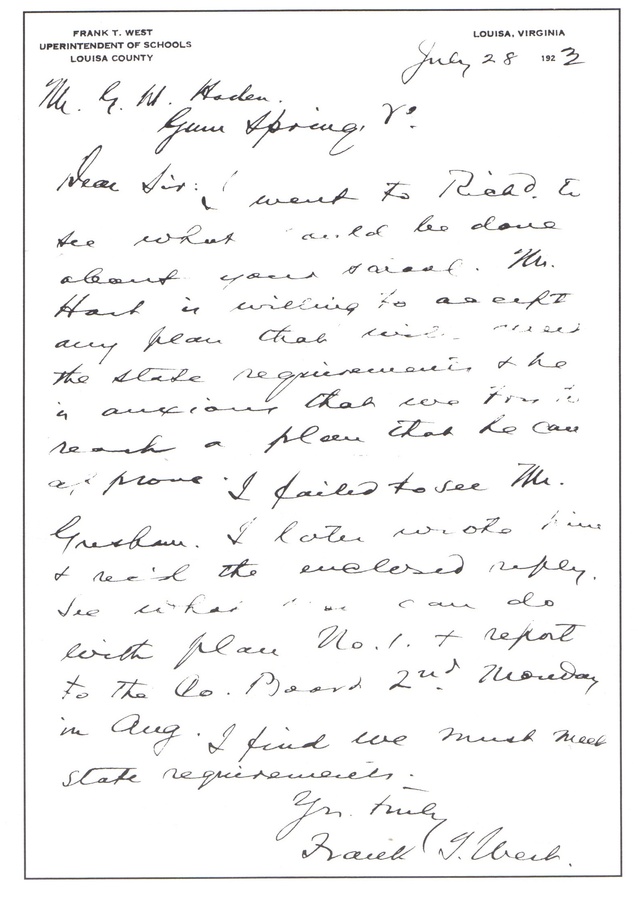 FRANK T. WEST
UPERINTENDENT OF SCHOOLS
LOUISA COUNTY
LOUISA, VIRGINIA
July 28 1923
Mr. G. M. Haden.
Gum Spring, Va.
Dear Sir: I went to Richd. to
see what could be done
about your school. Mr.
Hart is willing to accept
any plan that will meet
the state requirements & he
is anxious that we try to
reach a plan that he can
approve. I failed to see Mr.
Gresham. I later wrote him
& rec'd the enclosed reply.
See what you can do
with plan No. 1. & report
to the Co. Board 2nd Monday
in Aug. I find we must meet
state requirements.
Yrs. truly
Frank T. West.